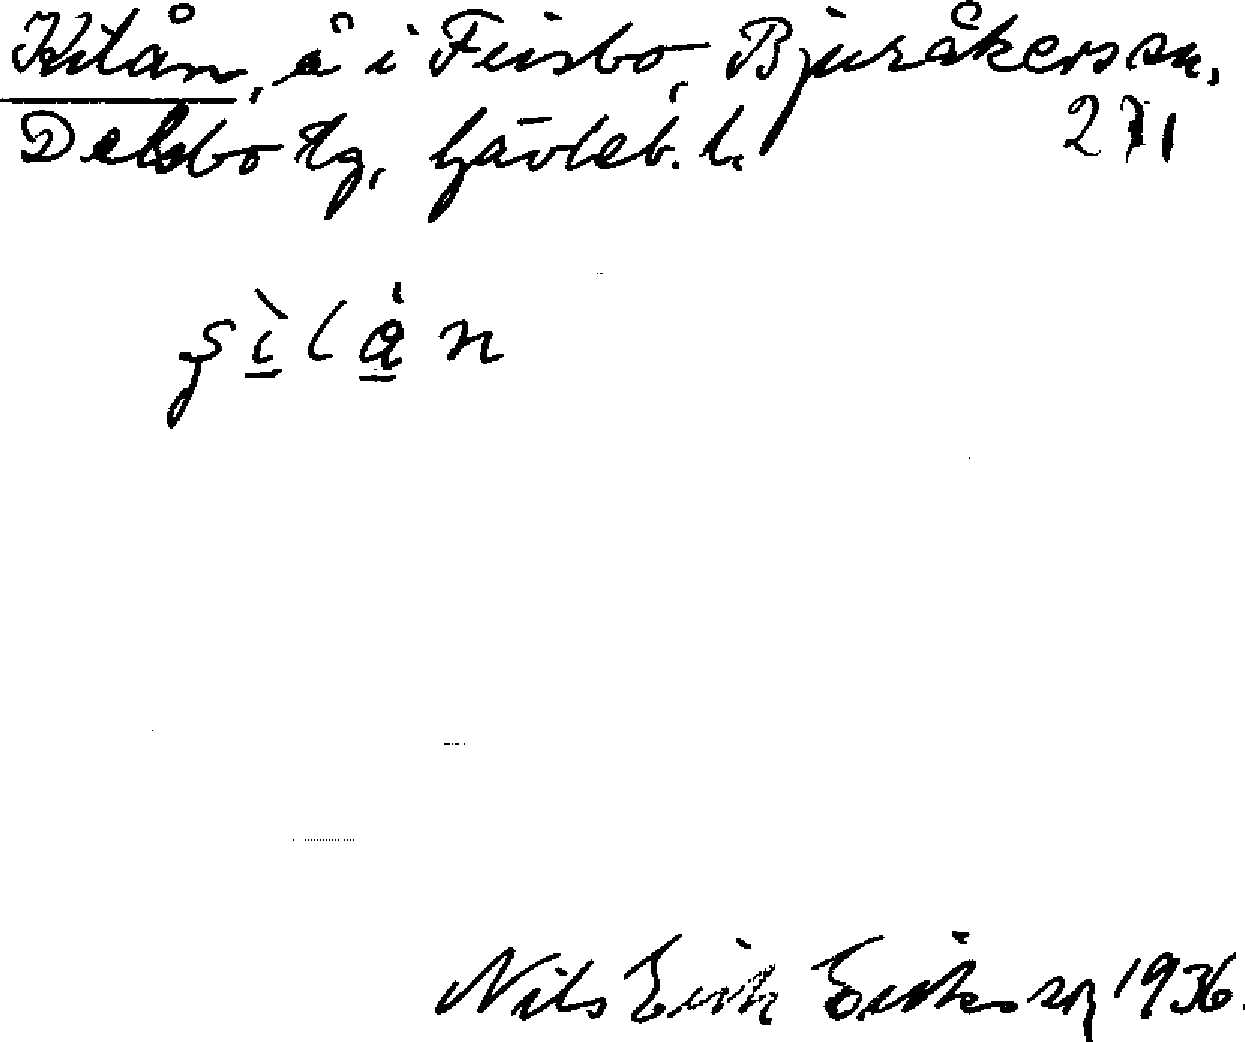 Kilån, å i Fursbo, Bjuråkers sn,
Delsbo tg, Gävleb. l.
271
Nils Erik Eriksson 1936.